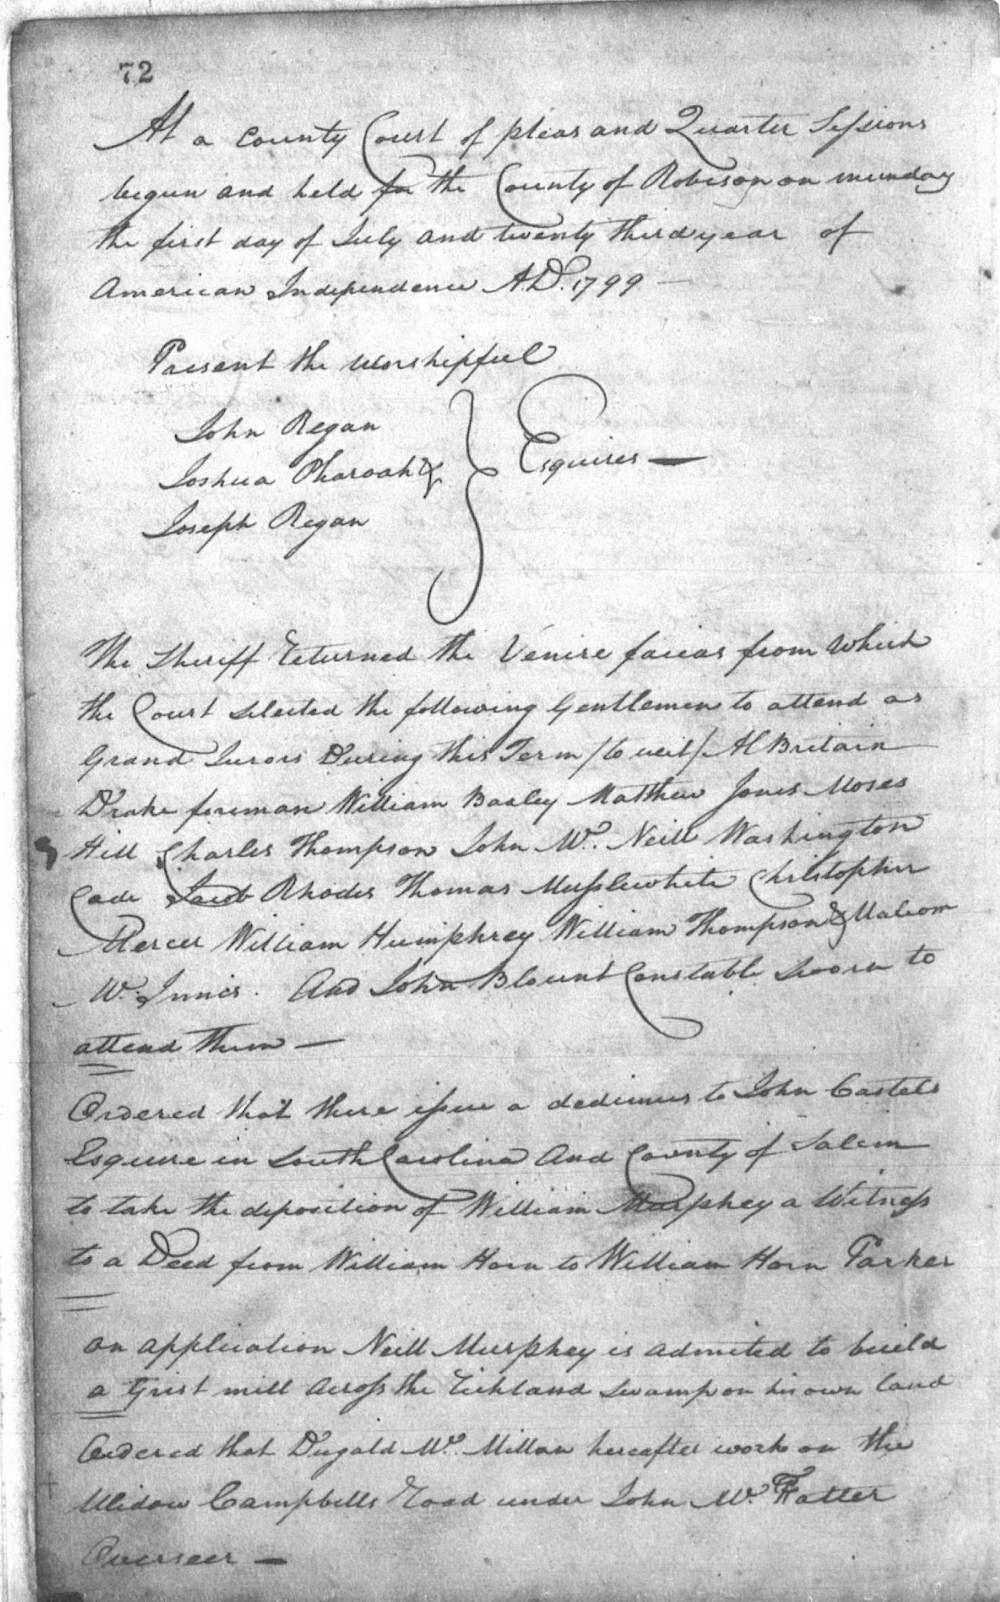 72
At a County Court of pleas and Quarter Sessions
begun and held for the County of Robeson on munday
the first day of July and twenty third year of
American Independence A.D. 1799 —
Present the worshipful
John Regan
Joshua Pharoah & } Esquires —
Joseph Regan
The Sheriff Returned the Venire facias from which
the Court selected the following Gentlemen to attend as
Grand Jurors During this Term /to wit/ Al Britain
Drake foreman William Baxley Matthew Jones Moses
Hill Charles Thompson John Mc. Neill Washington
Cade Jacob Rhodes Thomas Musslewhite Christopher
Mercer William Humphrey William Thompson & Malcom
Mc. Innis. And John Blount Constable Sworn to
attend them —
Ordered that there issue a dedimus to John Castels
Esquire in South Carolina And County of Salem
to take the deposition of William Murphey a Witness
to a Deed from William Horn to William Horn Parker
on application Neill Murphey is admited to build
a Grist mill Across the Richland Swamp on his own land
Ordered that Dugald Mc. Millan hereafter work on the
Widow Campbells Road under John Mc. Fatter
Overseer —